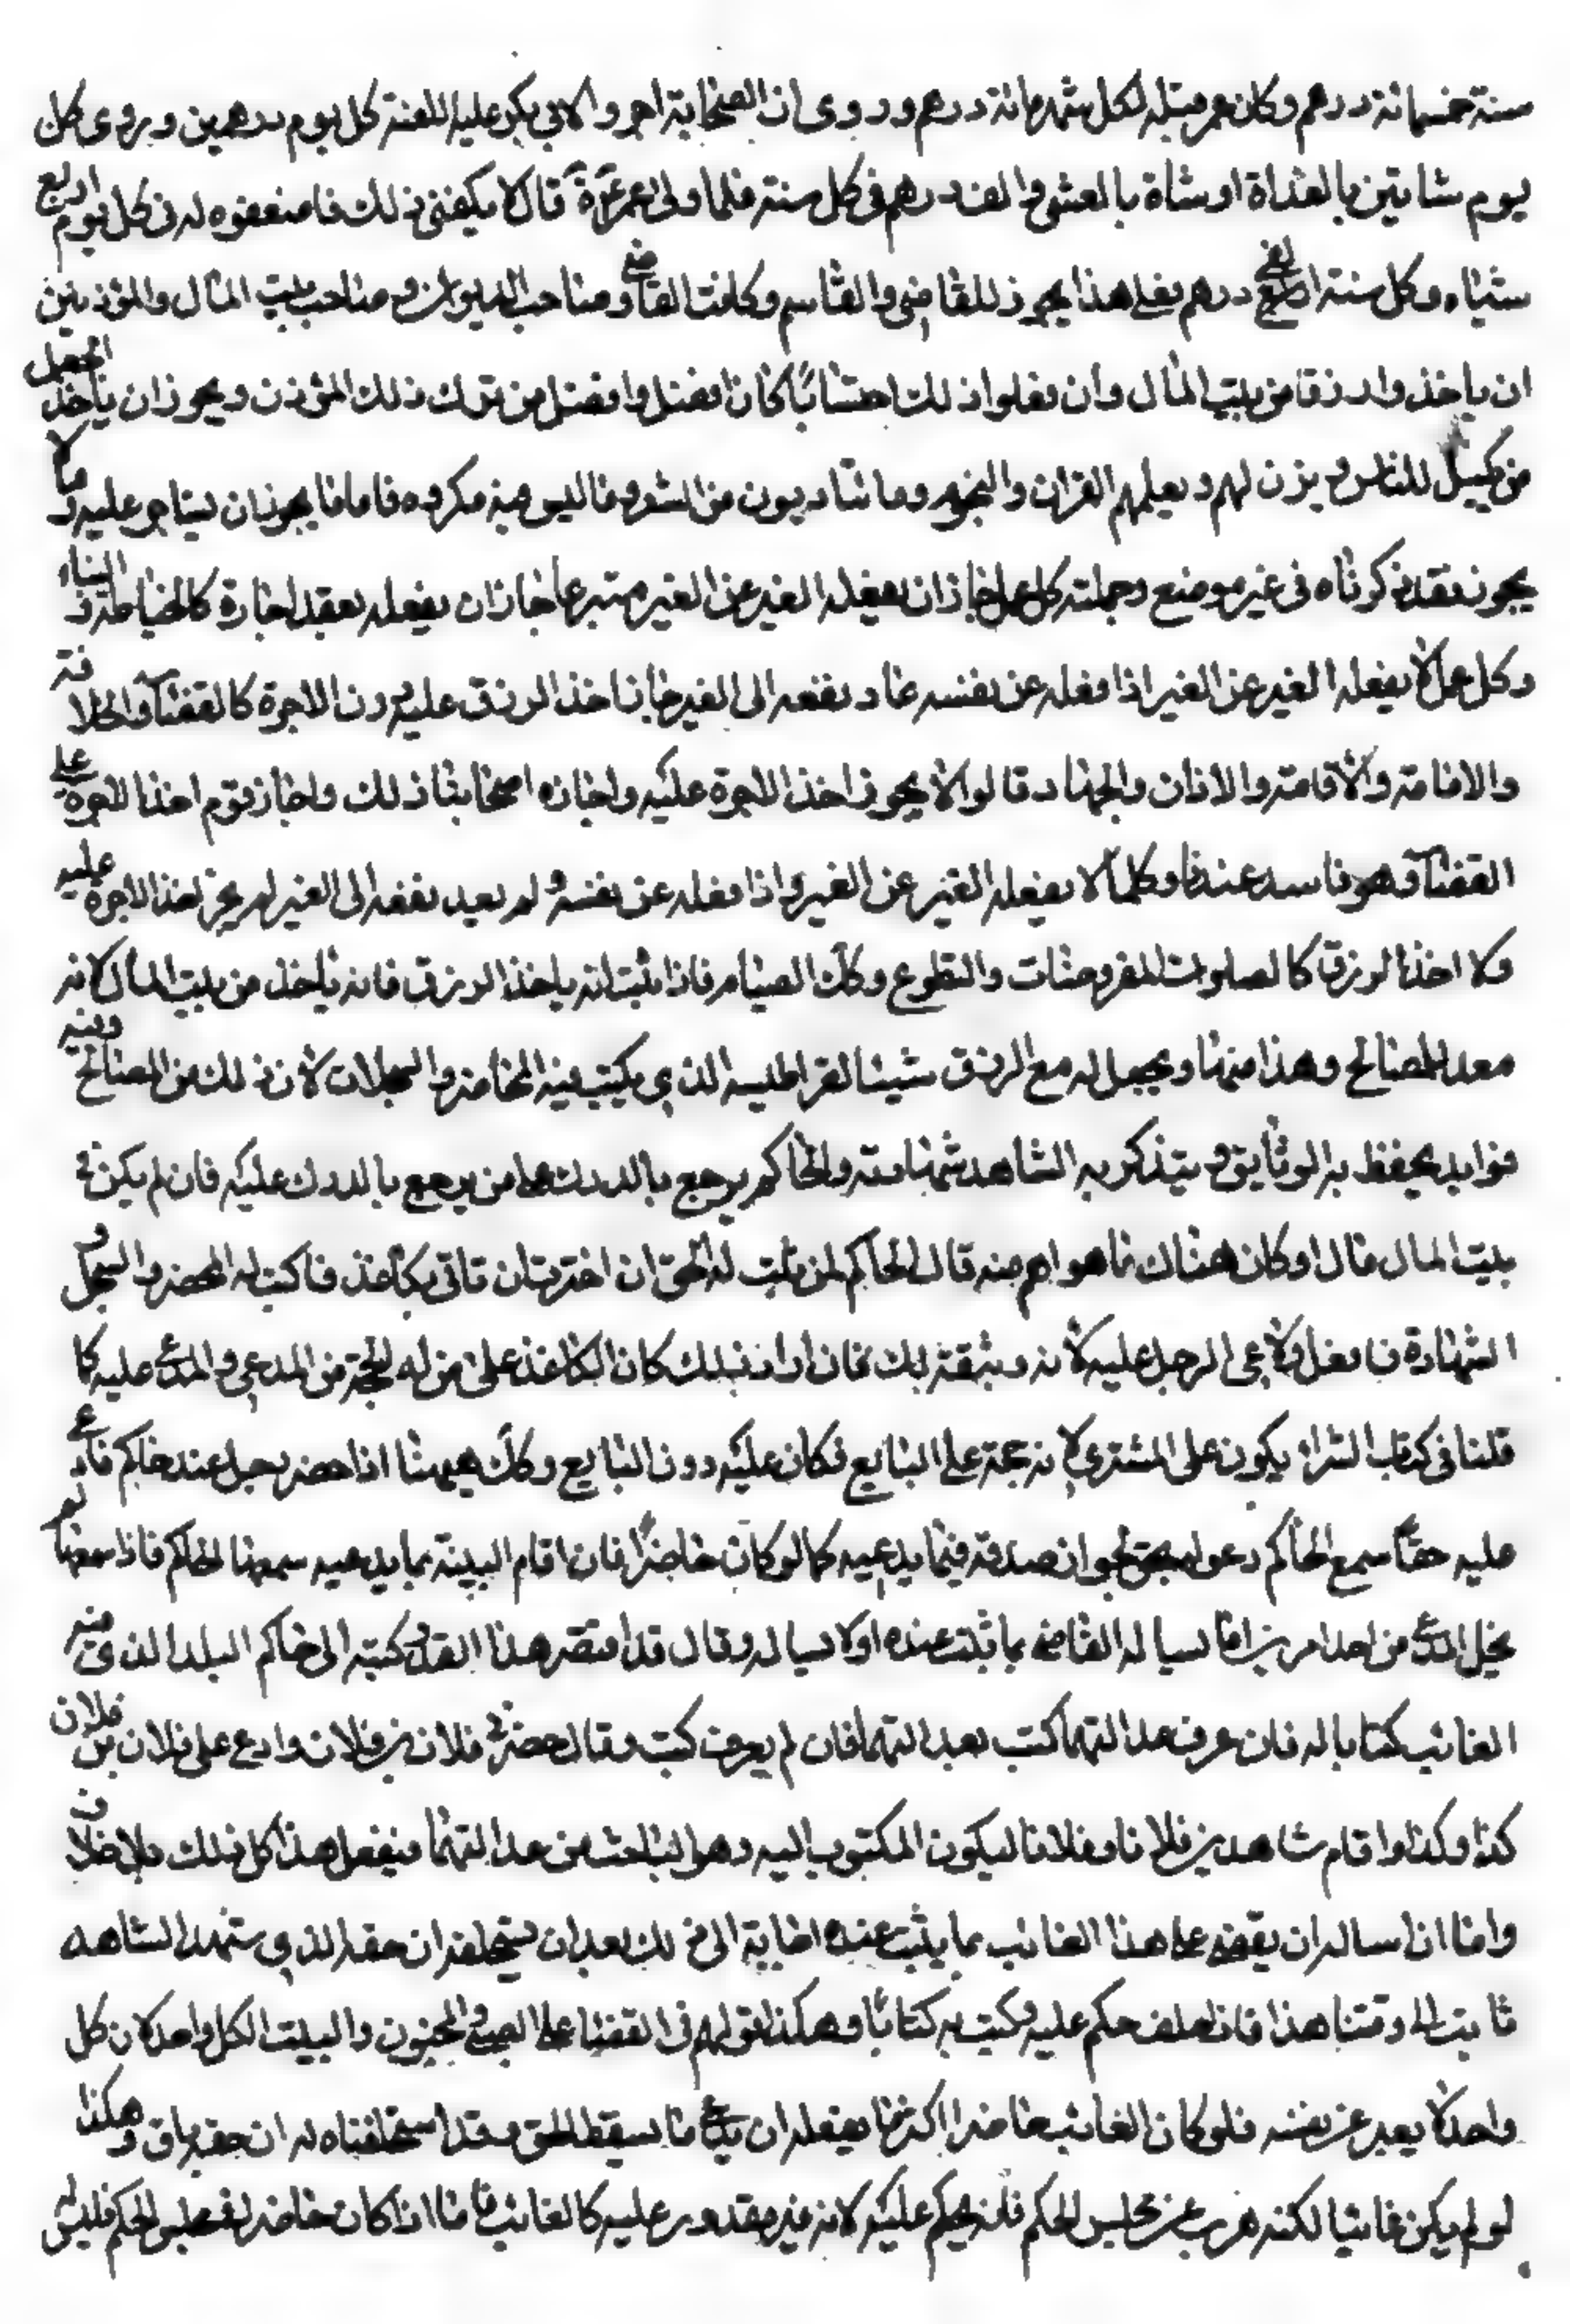 سنة خمسمائة درهم وكان عمر قبله لكل شهر مائة درهم وروى ان الصحابة اجروا لابى بكر عليه اللعنة كل يوم درهمين ويروى كل
يوم شاتين بالغداة اوشاة بالعشى والف درهم فى كل سنة فلما ولى عمر قال لا يكفنى ذلك فاضعفوه له فى كل يوم اربع
شياء وكل سنة الفى درهم فعلى هذا يجوز للقاضى والقاسم وكاتب القاضى وصاحب الديوان وصاحب بيت المال والمؤذنين
ان ياخذوا رزقا من بيت المال وان فعلوا ذلك احتسابا كان افضل وافضل من ترك ذلك المؤذن ويجوز ان ياخذ الجعل
من يكيل للناس ويزن لهم ويعلمهم القران والنحو وما يتادبون من الشعر وما ليس فيه مكروه فاما ما يجوز ان يستاجر عليه وما لا
يجوز فقد ذكرناه فى غير موضع وجملته كل عمل جاز ان يفعله الغير عن الغير متبرعا جاز ان يفعله بعقد اجارة كالخياطة والبناء
وكل عمل لا يفعله الغير عن الغير اذا فعله عن نفسه عاد نفعه الى الغير جاز اخذ الرزق عليه دون الاجرة كالقضاء والخلافة
والامامة والاقامة والاذان والجهاد قالوا لا يجوز اخذ الاجرة عليه واجازه اصحابنا ذلك واجاز قوم اخذ الاجرة على
القضاء وهو فاسد عندنا وكلما لا يفعله الغير عن الغير واذا فعله عن نفسه ولم يعد نفعه الى الغير لم يجز اخذ الاجرة عليه
ولا اخذ الرزق كالصلوات المفروضات والتطوع وكك الصيام فاذا ثبت انه ياخذ الرزق فانه ياخذ من بيت المال لانه
معد للمصالح وهذا منها ويجعل له مع الرزق شيئا لقراطيسه الذي يكتب فيه المحاضر والسجلات لان ذلك من المصالح وفيه
فوايد يحفظ به الوثايق ويتذكر به الشاهد شهادته والحاكم يرجع بالدرك على من يرجع بالدرك عليه فان لم يكن فى
بيت المال مال او كان هناك ما هو اهم منه قال الحاكم لمن ثبت له الحق ان اخترت ان تاتى بكاغذ فاكتب له المحضر والسجل و
الشهادة فافعل ولا على الرجل عليه لانه وثيقة لك فان اراد ذلك كان الكاغذ على من له الحجة من المدعي والمدعى عليه كما
قلنا فى كتاب الشراء يكون على المشتري لانه حجة على البايع فكان عليه دون البايع وكك هيهنا اذا حضر رجل عند حاكم فادعى
عليه حقا سمع الحاكم دعواه لجواز صدقه فيما يدعيه كما لو كان حاضرا فان اقام البينة بما يدعيه سمعها الحاكم فاذا سمعها لم
يخل المدعى من احد امرين اما يساله القاضى بما ثبت عنده اولا يساله وقال قد اقتصر هذا القدر كتبه الى حاكم البلد الذى فيه
الغائب كتابا له فان عرف عدالتهما كتب بعدالتهما فان لم يعرف كتب وقال حضرنى فلان بن فلان وادعى على فلان بن فلان
كذا وكذا واقام شاهدين فلانا وفلانا ليكون المكتوب اليه وهو الباحث عن عدالتهما فيفعل هذا كل ذلك بلا خلاف
واما اذا ساله ان يقضى على هذا الغائب بما يثبت عنده اجابة الى ذلك بعد ان يستحلفه ان حقه الذي ستهد الشاهد
ثابت الى وقتنا هذا فاذا حلف حكم عليه وكتب به كتابا وهكذا قولهم فى القضاء على الصبى والمجنون والميت الكل واحد لان كل
واحد لا يعبر عن نفسه فلو كان الغائب حاضرا اكثر ما يفعله ان يدعى ما يسقط الحق وقد استحلفناه له ان حقه باق وهكذا
لو لم يكن غائبا لكنه هرب عن مجلس الحكم فانه يحكم عليه لانه غير مقدور عليه كالغائب فاما اذا كان حاضر افى مجلس الحكم فليس له